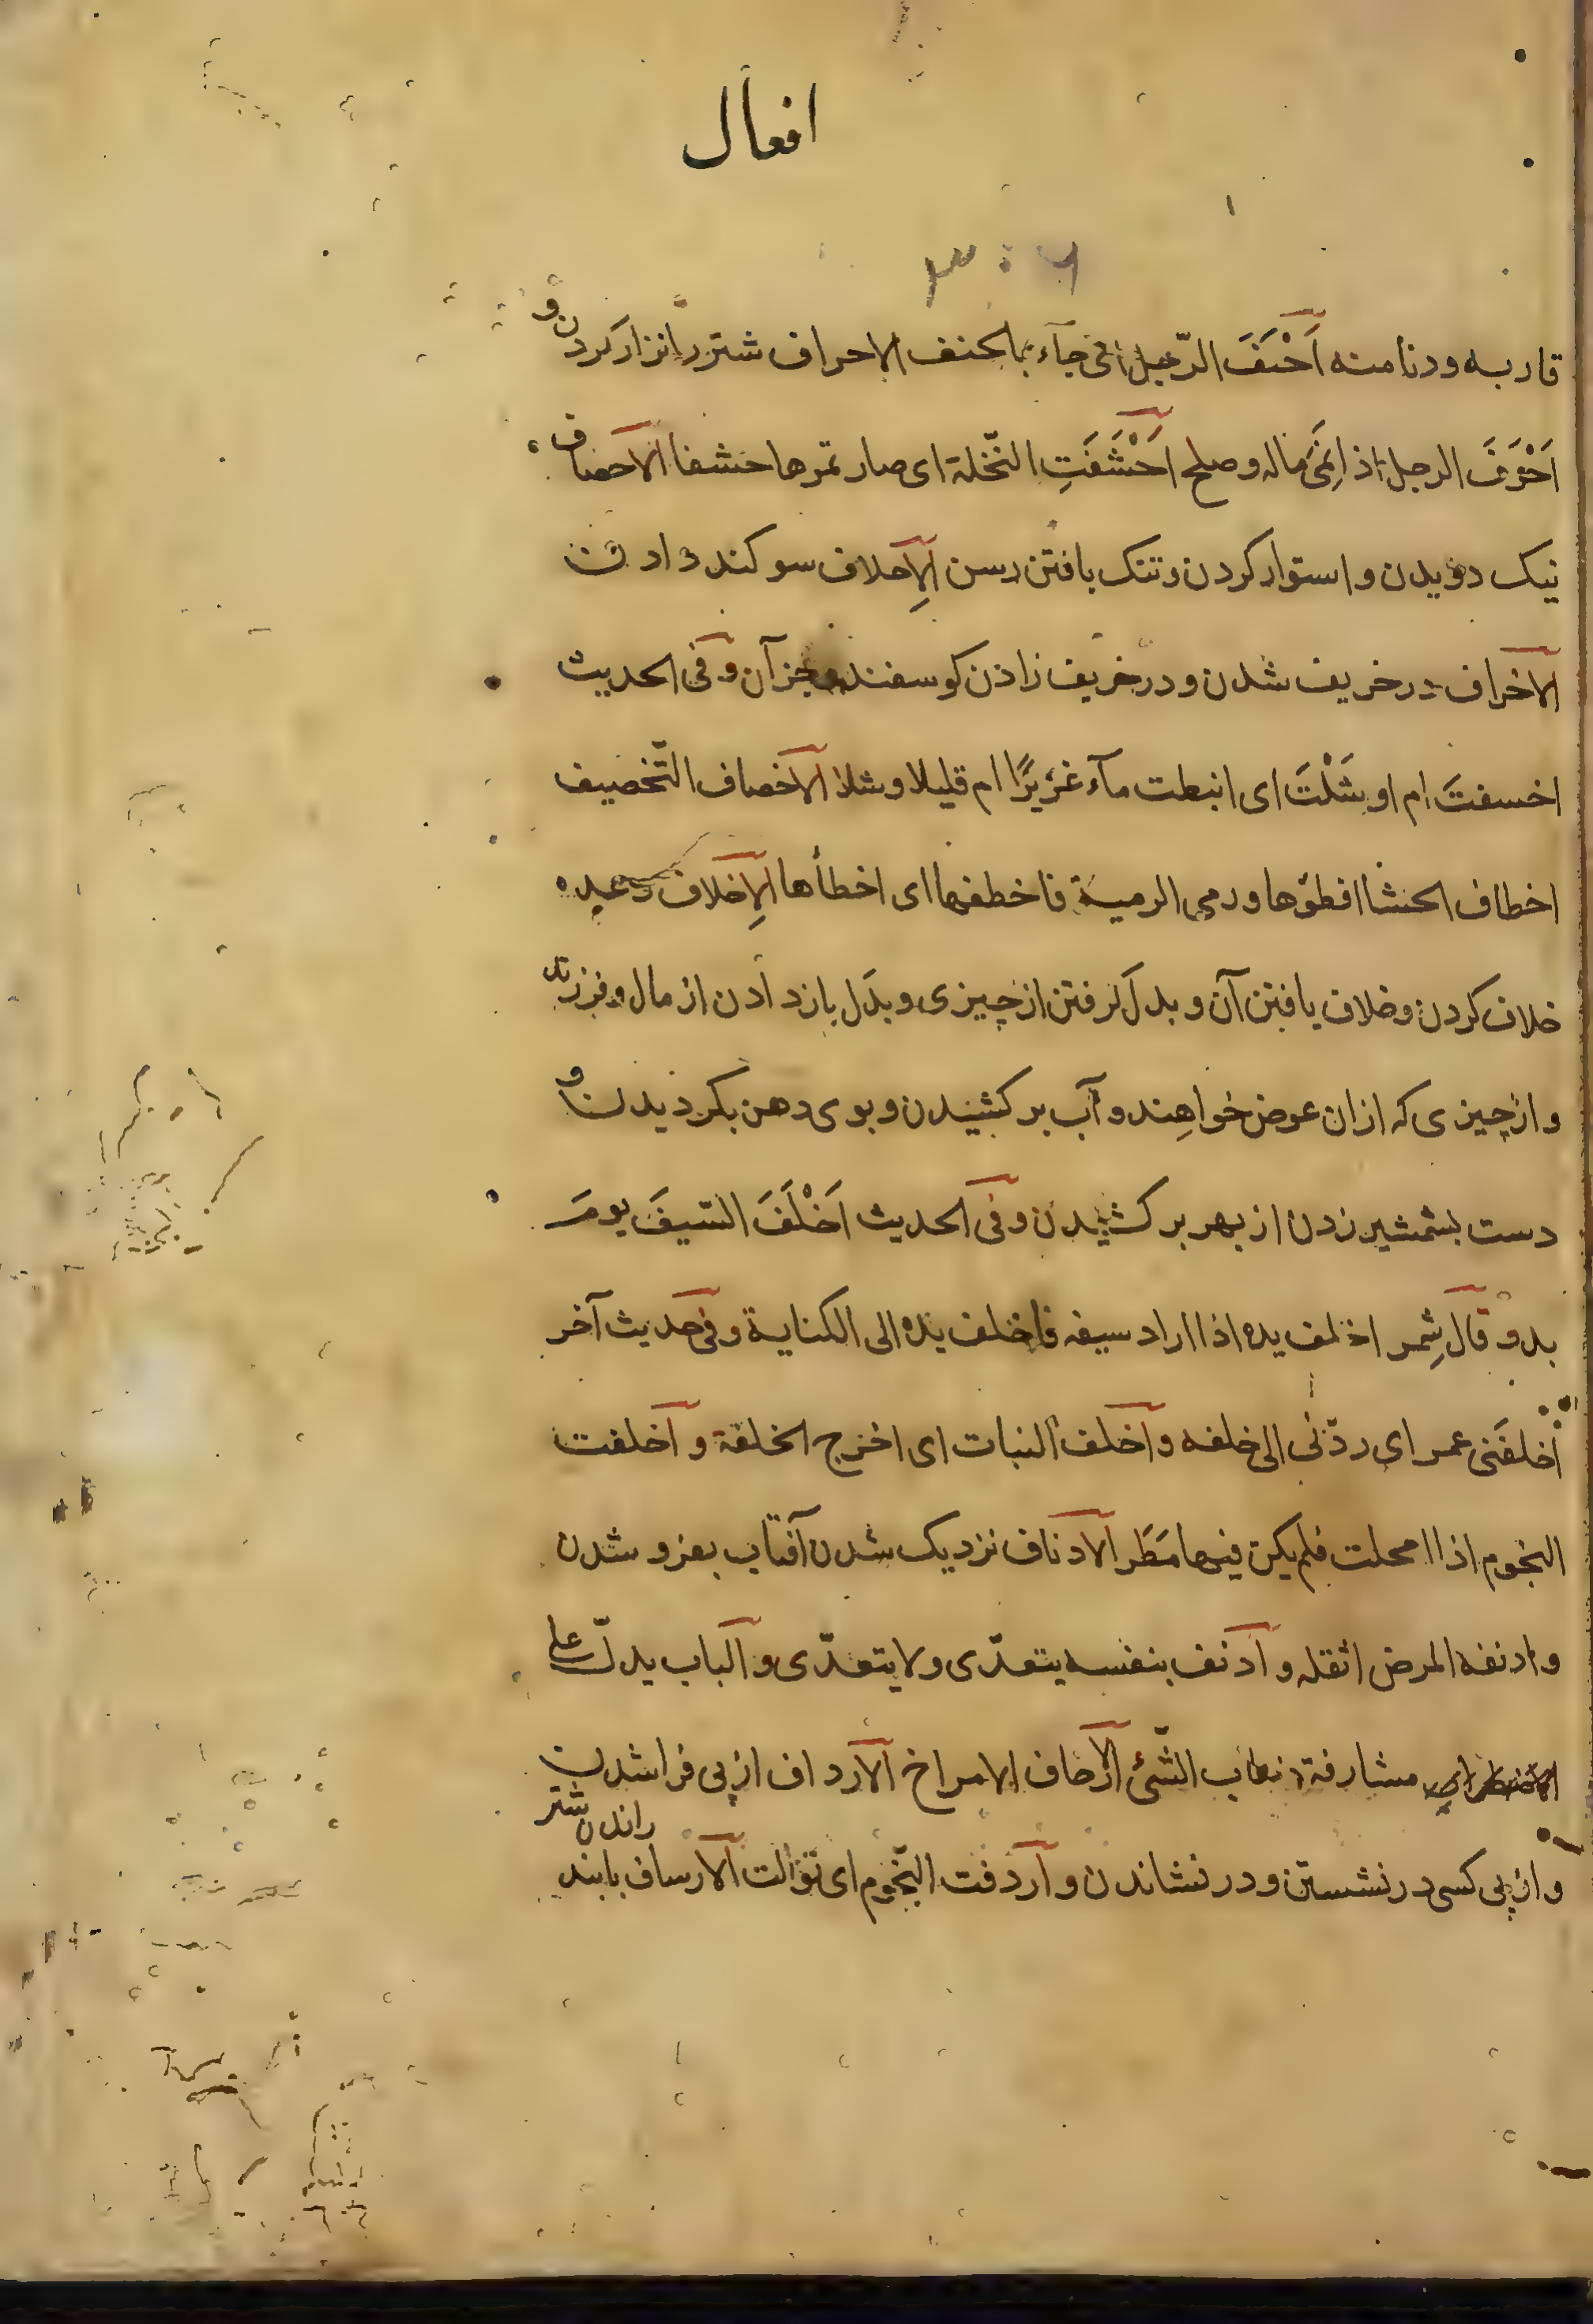 افعال
۳۰۶
قاربه ودنا منه اَحْنَفَ الرّجل اى جآء بالحنف الاحراف شتر را نزار کردن و
اَحْرَفَ الرجل اذا نَمَى ماله وصلح اَحْشَفَتِ النّخلة اى صار تمرها حشفا الاحصاف
نیک دویدن و استوار کردن و تنک بافتن رسن الاِحلاف سوکند دادن
الاخراف در خریف شدن و در خریف زادن کوسفند و جز آن وفى الحديث
اخسفتَ ام اوشَلْتَ اى انبطت مآء غزيرًا ام قليلا وشلا الاخصاف التّخصيف
اخطاف الحشا انطوّها ورمى الرمية فاخطفها اى اخطأها الاِخلاف وعده
خلاف کردن و خلاف یافتن آن و بدل کرفتن از چیزی و بدَل بازدادن از مال و فرزند
و از چیزی که از ان عوض خواهند و آب برکشیدن و بوی دهن بکردیدن و
دست بشمشیر زدن از بهر برکشیدن وفى الحديث اَخْلَفَ السّيفَ يومَ
بدر وقال شِمر اخلف يده اذا اراد سيفه فاخلف يده الى الكناية وفى حديث آخر
اَخلفَنى عمر اى ردّنى الى خلفه واخلف النبات اى اخرج الخلفة واخلفت
النجوم اذا امحلت فلم يكن فيها مَطَر الادناف نزدیک شدن آفتاب بغرو شدن
وادنفه المرض اثقله وادنف بنفسه يتعدّى ولا يتعدّى والباب يدلّ على
مشارفة ذهاب الشّئ الارخاف الامراخ الارداف از پی فرا شدن
و از پی کسی در نشستن و در نشاندن واردفت النّجوم اى توالت الارساف بابند
راندن شتر